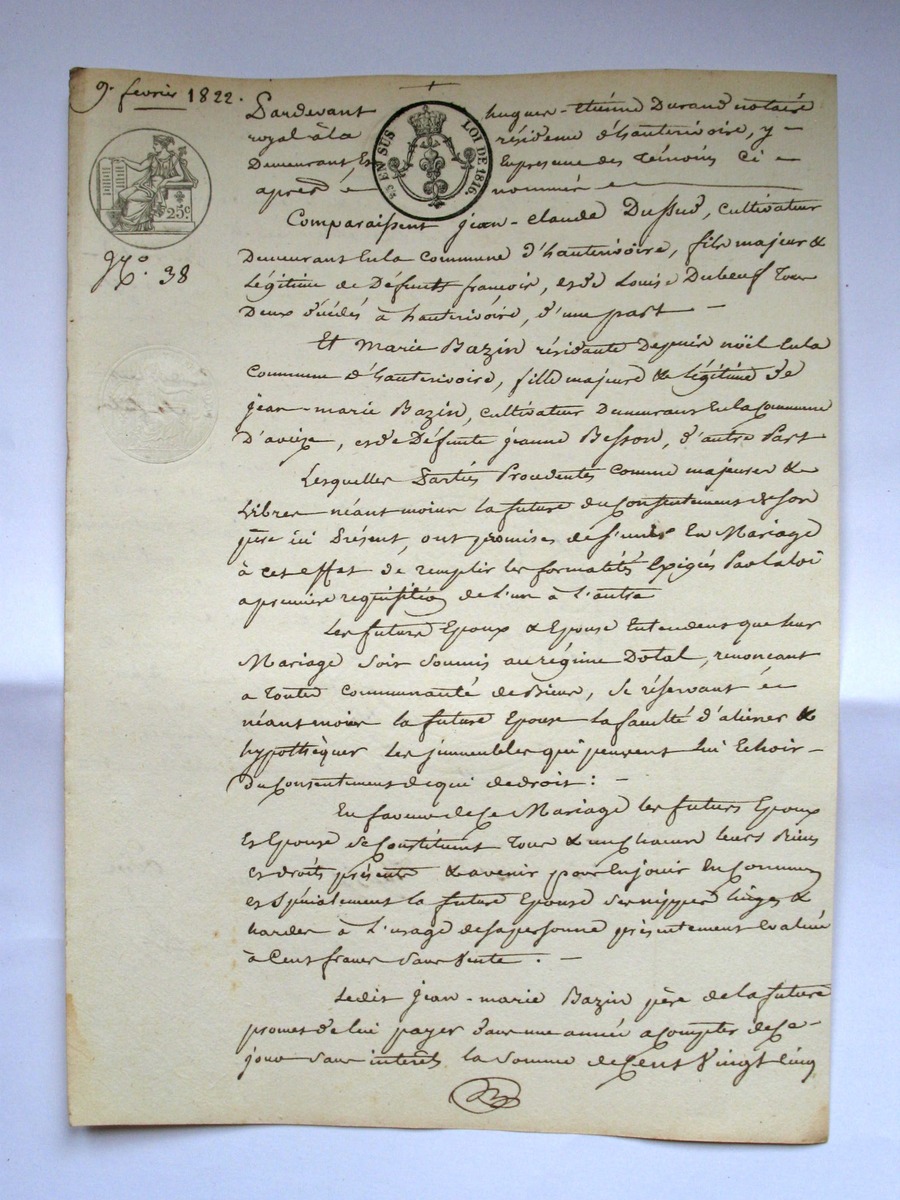 9. fevrier 1822.
Pardevant hugues-etiénne Durand notaire
royal à la résidence d'hauterivoire, y -
Demeurant, Et En présence des témoins ci -
après é nommés
EN SUS LOI DE 1816.
25c
N.o 38
Comparaissent jean-claude Dussud, cultivateur
Demeurant En la Commune d'hauterivoire, fils majeur &
Légitime de Défunts francois, et de Louise Duboeuf Tous
Deux décédés à hauterivoire, d'une part -
Et Marie Bazin résidante Depuis nöel En la
Commune d'hauterivoire, fille majeure & légitime de
jean-marie Bazin, cultivateur Demeurant En la Commune
D'aveize, et de Défunte jeanne Besson, d'autre Part
Lesquelles Parties Procedentes comme majeures &
Libres néantmoins la future du Consentement de son
père ici Présent, ont promises de s'unir En Mariage
à cet effet de remplir les formalités Exigés Par la loi
a première requisition de l'un à l'autre
Les futurs Epoux & Epouse Entendent que leur
Mariage soit soumis au régime Dotal, renoncant
a toutes communauté de Biens, se réservant é
néantmoins la future Epouse la faculté d'aliener &
hypothèquer les jmmeubles qui peuvent lui Echoir -
Du Consentement de qui de droit : -
En faveur de Ce Mariage les futurs Epoux
Et Epouse se Constituent tous & un chacun leurs Biens
et droits présents & avenir pour En jouir En Commun
et spécialement la future Epouse ses nippes linges &
hardes à L'usage de sa personne présentement Evalués
à Cent francs sans Vente . -
Ledit jean-marie Bazin père de la future
promet de lui payer dans une année a Compter de Ce -
jour sans intérêts la somme de Cent Vingt Cinq